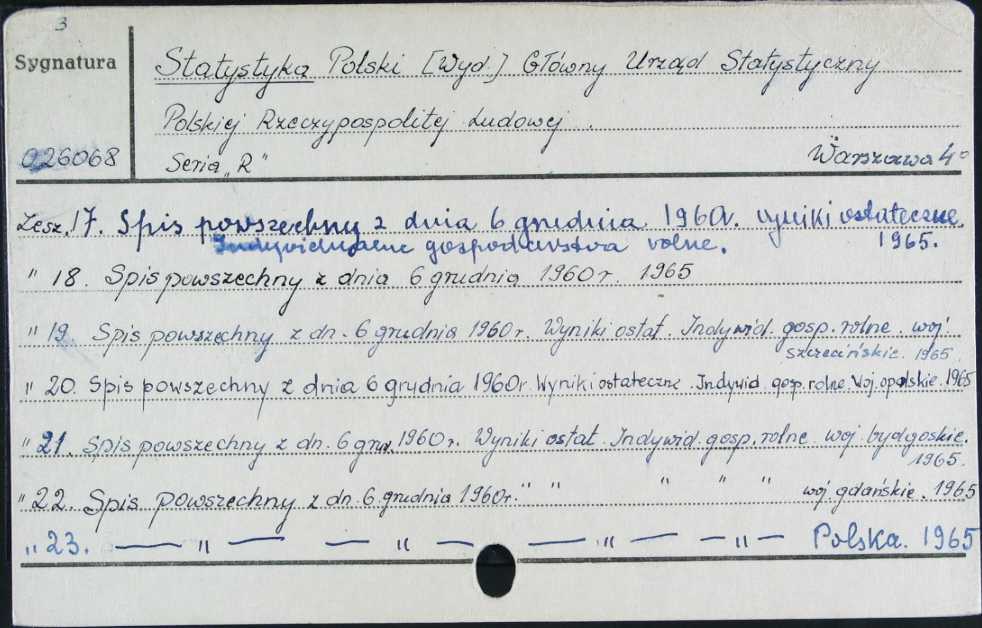 3
Sygnatura
Statystyka Polski [Wyd.] Główny Urząd Statystyczny
Polskiej Rzeczypospolitej Ludowej.
026068
Seria „R"
Warszawa 4°
Zesz. 17. Spis powszechny z dnia 6 grudnia 1960r. wyniki ostateczne.
Indywidualne gospodarstwa rolne. 1965.
" 18. Spis powszechny z dnia 6 grudnia 1960 r. 1965
" 19. Spis powszechny z dn. 6 grudnia 1960 r. Wyniki ostat. Indywid. gosp. rolne. woj.
szczecińskie. 1965.
" 20. Spis powszechny z dnia 6 grudnia 1960r. Wyniki ostateczne. Indywid. gosp. rolne. Woj. opolskie. 1965
" 21. Spis powszechny z dn. 6 grud. 1960 r. Wyniki ostat. Indywid. gosp. rolne woj. bydgoskie.
1965.
" 22. Spis powszechny z dn. 6. grudnia 1960r. " " " " " woj. gdańskie. 1965
" 23. — " — — " — — " — — " — Polska. 1965